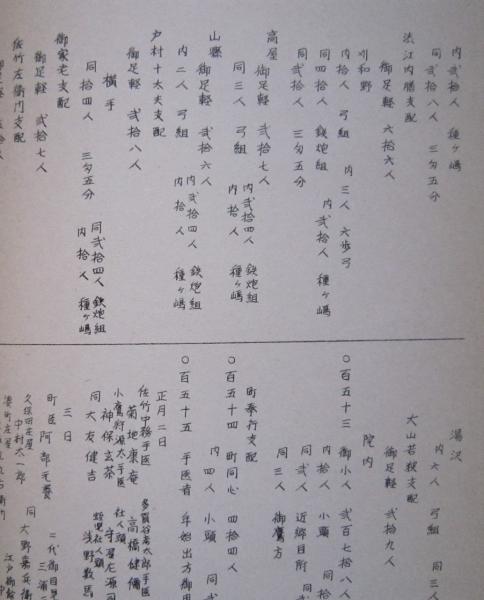 内弐拾人 種ヶ嶋
同弐拾八人 三匁五分
渋江内膳支配
御足軽 六拾六人
刈和野
内拾人 弓組 内三人 六歩弓
同四拾人 鉄炮組 内弐拾人 種ヶ嶋
同弐拾人 三匁五分
角屋
御足軽 弐拾七人
同三人 弓組 内弐拾四人 鉄炮組
内拾人 種ヶ嶋
山縣
御足軽 弐拾六人
内二人 弓組 内弐拾四人 鉄炮組
内拾人 種ヶ嶋
戸村十太夫支配
御足軽 弐拾八人
横手
同拾四人 三匁五分 同弐拾四人 鉄炮組
内拾人 種ヶ嶋
御家老支配
御足軽 弐拾七人
佐竹左衛門支配
湯沢
内六人 弓組 同三人
大山若狭支配
御足軽 弐拾九人
院内
○百五十三 御小人 弐百七拾八人
内拾人 小頭 同拾
同弐人 近郷目所 同
同三人 御鷹方
町奉行支配
○百五十四 町同心 四拾四人
内四人 小頭 同弐
○百五十五 手医者 年始出方御用
正月二日
佐竹中務手医 多賀谷彦太郎手医
菊地康庵 高橋健彌
小鷹狩源太手医 社人頭
神保玄茶 守屋左源司
同大友健吉 浅野数馬
三日
町医阿部元養 二代御目見
三浦
久保田庄屋
中村太一郎 同大野嘉兵衛
湊町庄屋 江戸御